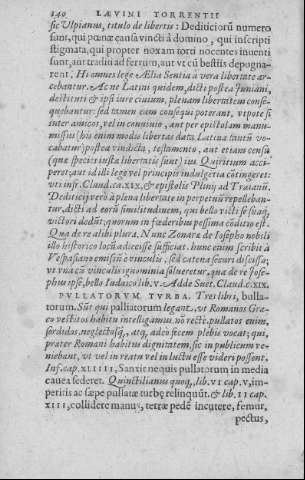 240 LÆVINI TORRENTII
sic Vlpianus, titulo de libertis: Dediticiorũ numero
sunt, qui pœnæ causa vincti à domino, qui inscripti
stigmata, qui propter noxam torti nocentes inuenti
sunt, aut traditi ad ferrum, aut vt cũ bestiis depugna-
rent. Hi omnes lege Ælia Sentia à vera libertate ar-
cebantur. Ac ne Latini quidem, dicti postea Iuniani,
destituti & ipsi iure ciuium, plenam libertatem conse-
quebantur: sed tamen eam consequi poterant, vtpote si
inter amicos, vel in conuiuio, aut per epistolam manu-
missi (his enim modis libertas data Latina tantũ vo-
cabatur) postea vindicta, testamento, aut etiam censu
(quæ species iustæ libertatis sunt) ius Quiritium acci-
perent; aut id illi lege vel principis indulgentia cõtingeret:
vti infr. Claud. ca. XIX, & epistolis Plinij ad Traianũ.
Dediticij verò à plena libertate in perpetuũ repelleban-
tur, dicti ad eorũ similitudinem, qui bello victi se suáq;
victori dedũt: quorum in fœderibus pessima cõditio est.
Qua de re alibi plura. Nunc Zonaræ de Iosepho nobili
illo historico locũ adiecisse sufficiat. hunc enim scribit à
Vespasiano emissũ è vinculis, sed catena securi discissa;
vt vnà cũ vinculis ignominia solueretur, qua de re Iose-
phus ipse, bello Iudaico lib. V. Adde Suet. Claud. c. XIX.
PVLLATORVM TVRBA. Tres libri, bulla-
torum. Sũt qui palliatorum legant, vt Romanos Græ-
co vestitos habitu intelligamus. nõ rectè. pullatos enim,
sordidos, neglectosq;, atq; adeò fæcem plebis vocat; qui,
præter Romani habitus dignitatem, sic in publicum ve-
niebant, vt vel in reatu vel in luctu esse videri possent.
Inf. cap. XLIIII, Sanxit ne quis pullatorum in media
cauea sederet. Quinctilianus quoq, lib. VI cap. V, im-
peritis ac sæpe pullatæ turbæ relinquũt. & lib. II cap.
XIII, collidere manus, terræ pedẽ incutere, femur,
pectus,